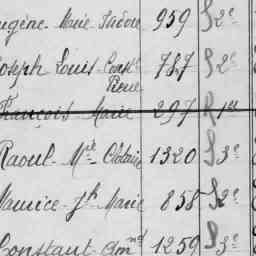 Eugène Marie Isidore 959 S 2e
Joseph Louis Const. 787 S 2e
Pierre
François Marie 297 R 1er
Raoul Mie Clotaire 1320 S 3e
Maurice Jh Marie 858 S 2e
Constant Amand 1259 S 3e